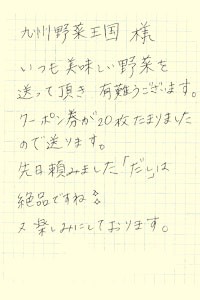 九州野菜王国 様
いつも美味しい野菜を
送って頂き 有難うございます。
クーポン券が20枚たまりました
ので送ります。
先日頼みました「だし」は
絶品ですね
又楽しみにしております。